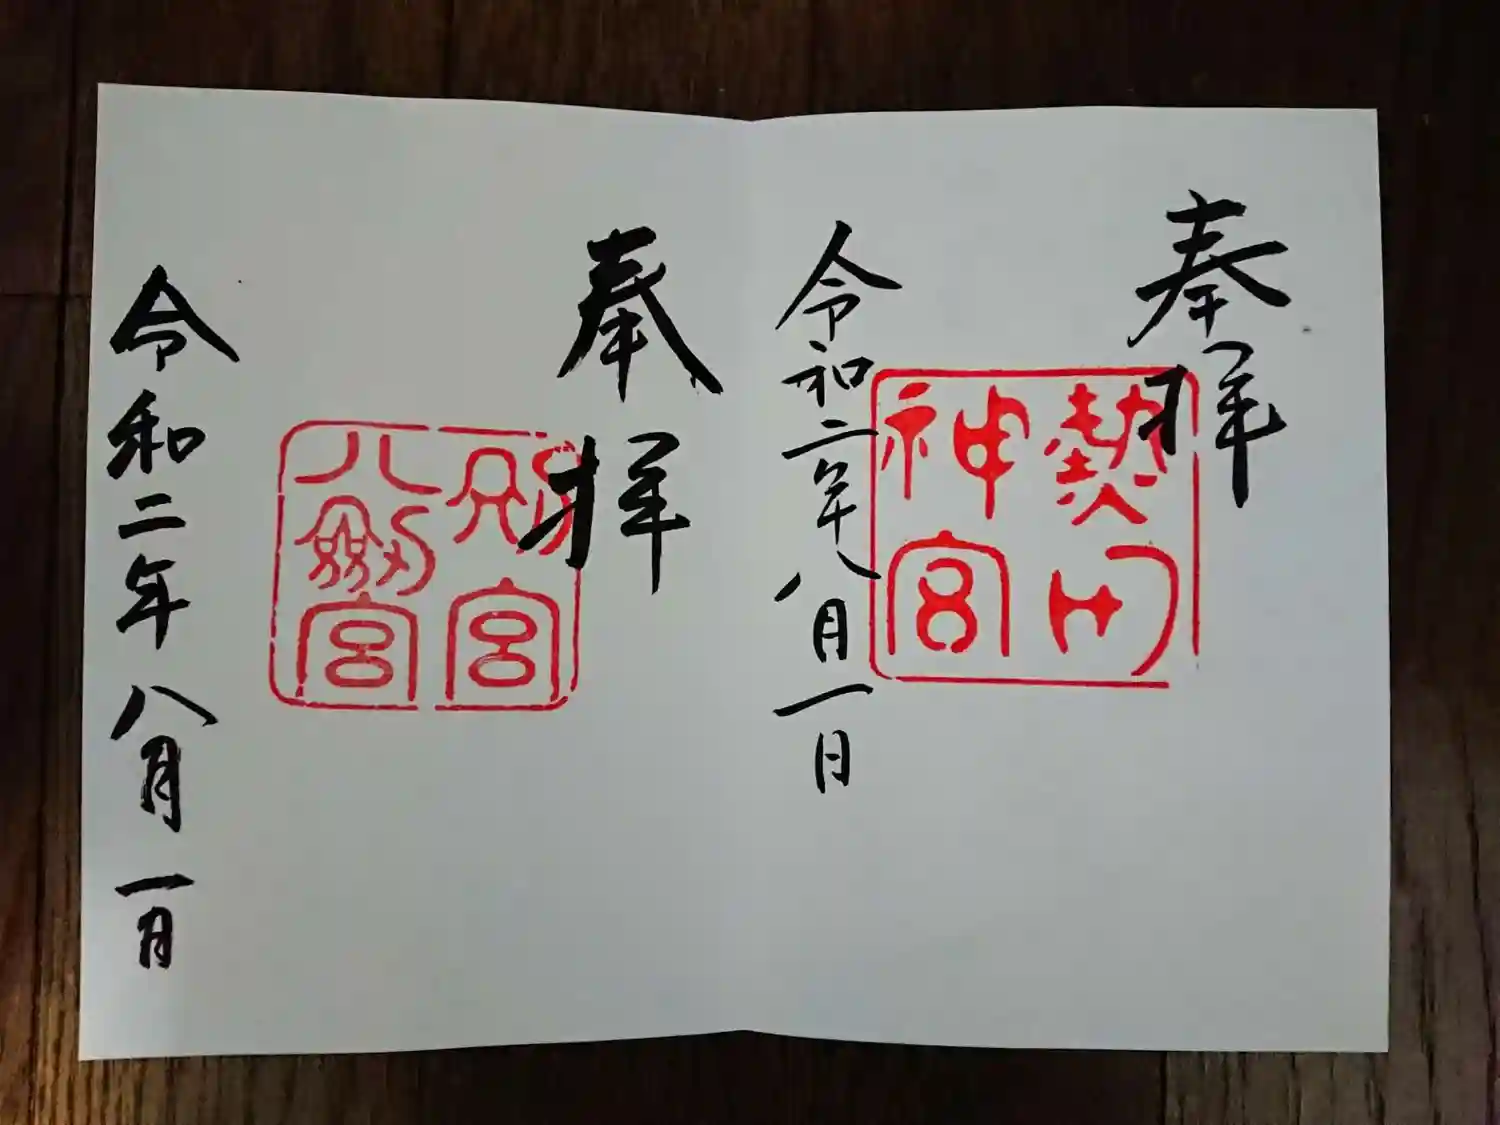 奉拝
熱田
神宮
令和二年八月一日
奉拝
別宮
八剣宮
令和二年八月一日